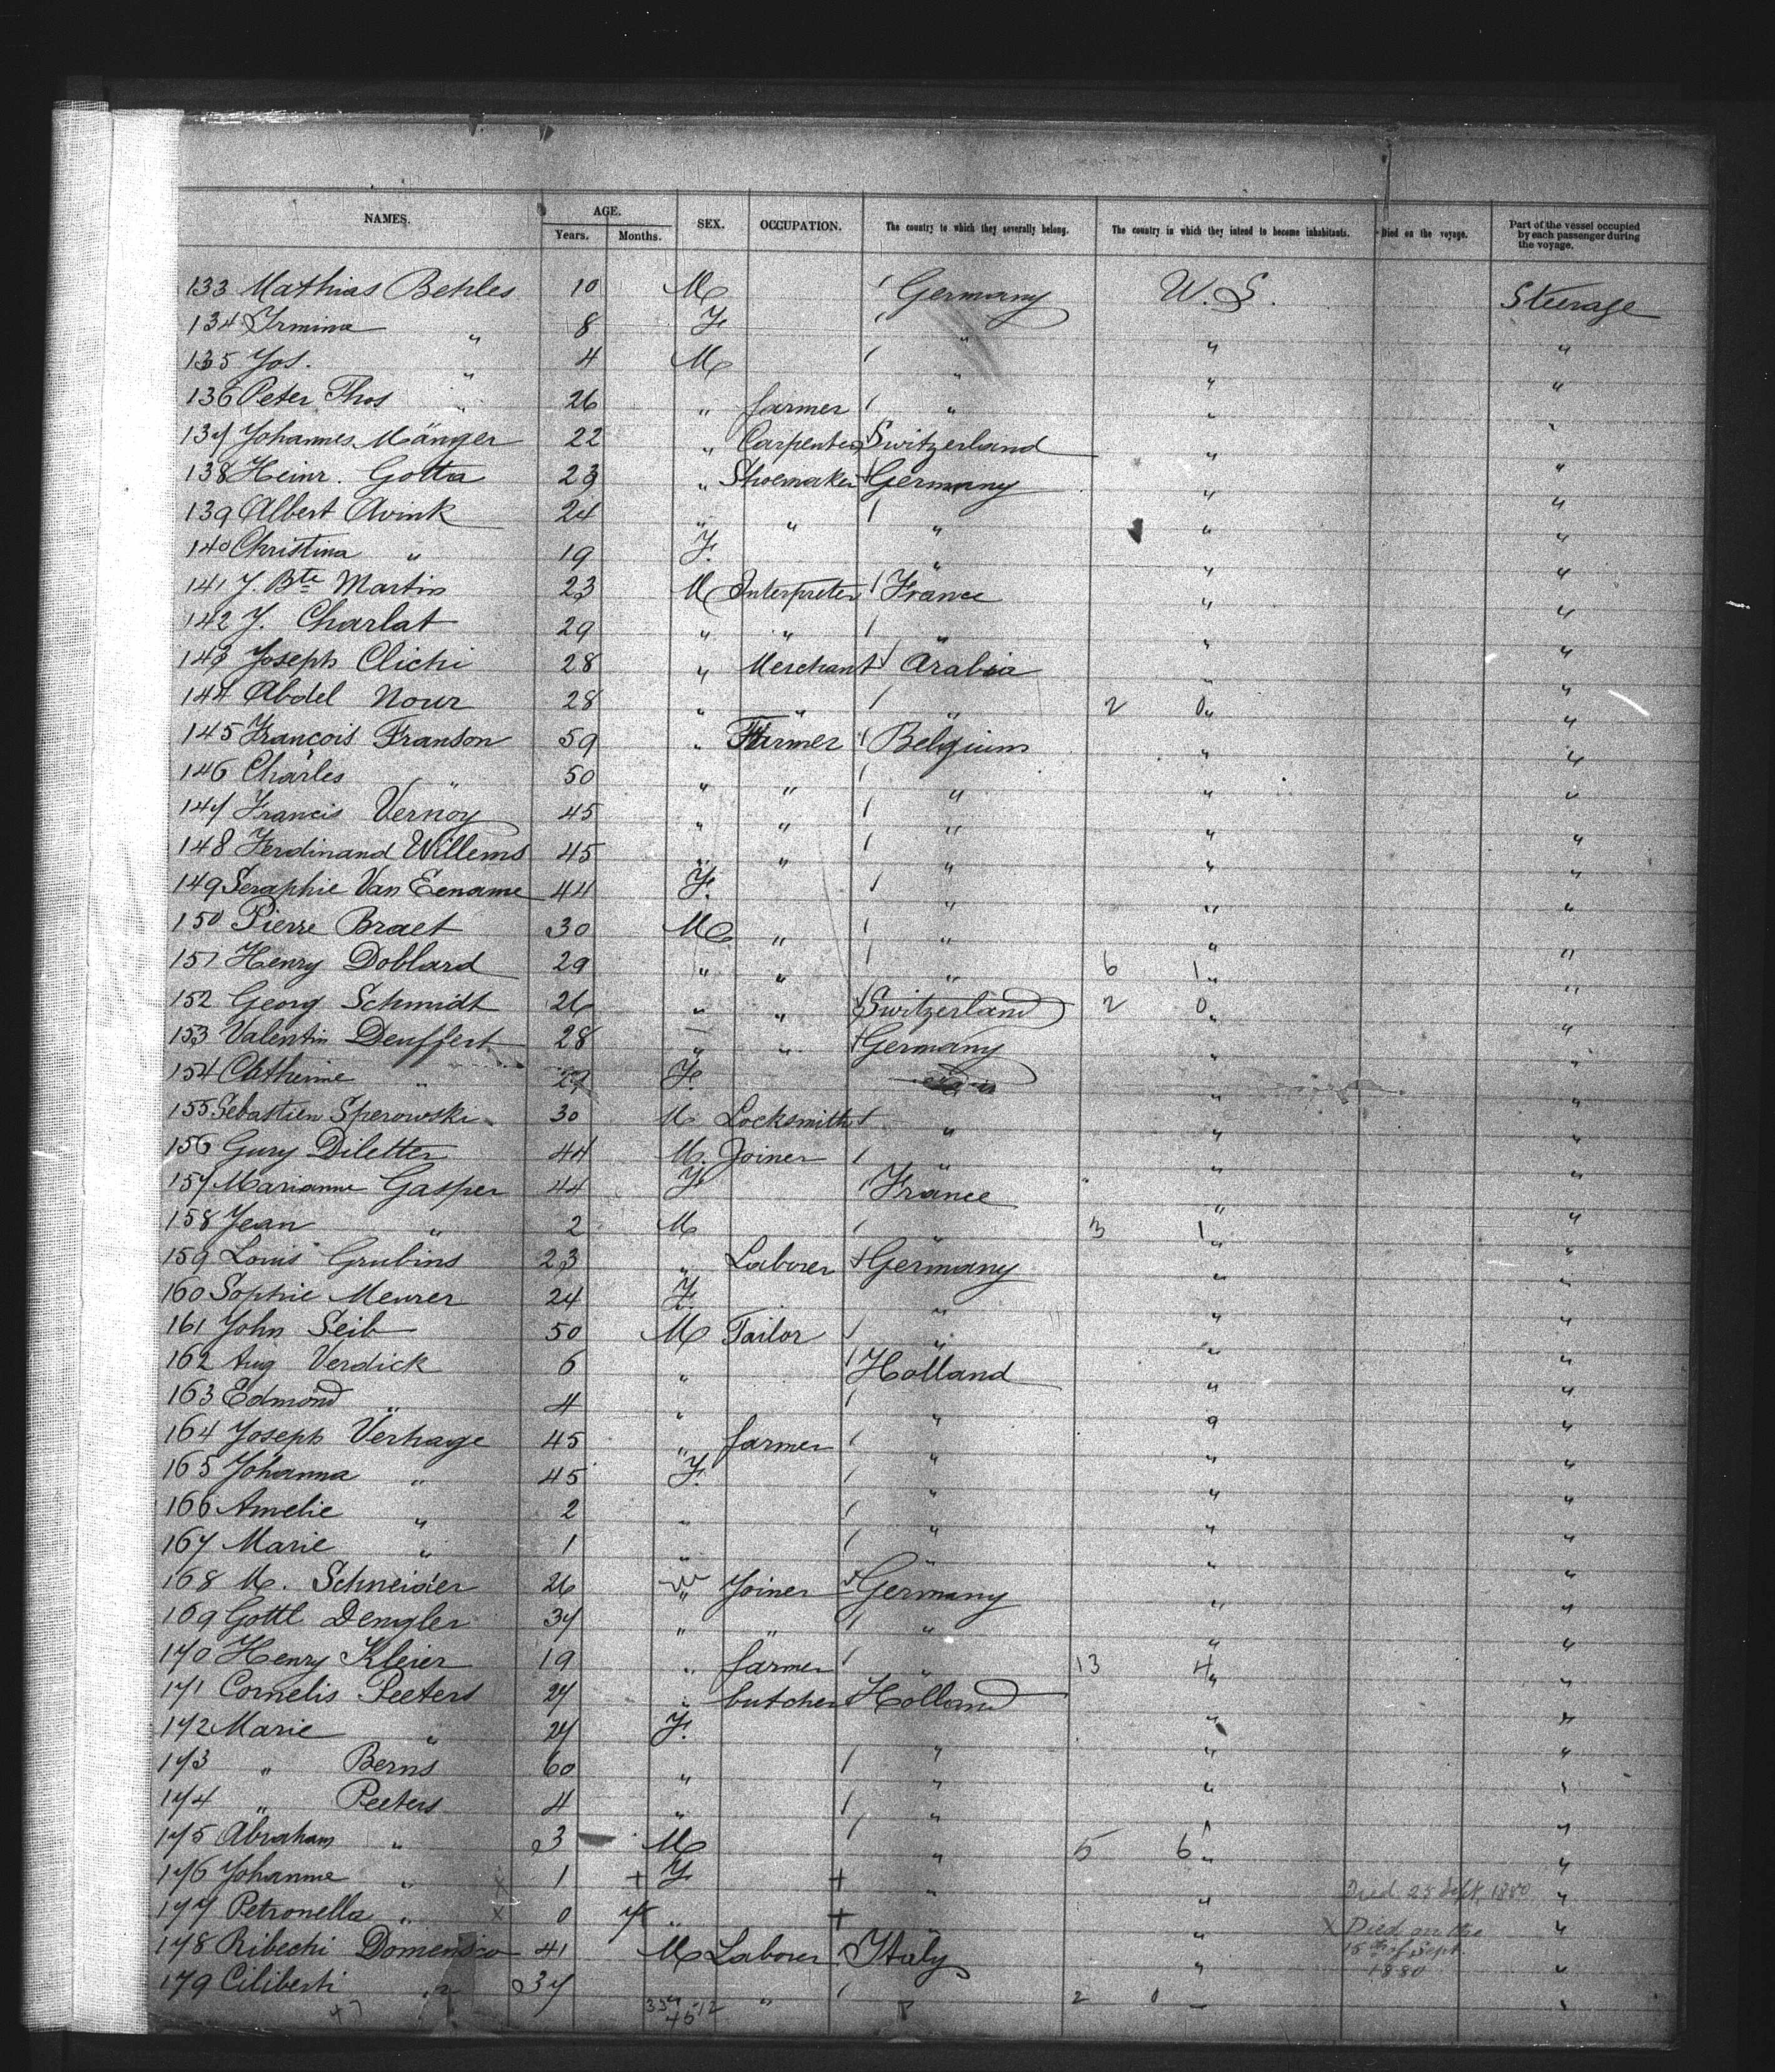 NAMES. AGE. Years. Months. SEX. OCCUPATION. The country to which they severally belong. The country in which they intend to become inhabitants. Died on the voyage. Part of the vessel occupied by each passenger during the voyage.
133 Mathias Behles 10 M Germany U.S. Steerage
134 Irmina " 8 F " " "
135 Jos. " 4 M " " "
136 Peter Thos " 26 " farmer " " "
137 Johannes Mänger 22 " Carpenter Switzerland " "
138 Heinr. Gotta 23 " Shoemaker Germany " "
139 Albert Avink 24 " " " " "
140 Christina " 19 F. " " "
141 J. Bte Martin 23 M Interpreter France " "
142 J. Charlat 29 " " " " "
143 Joseph Clichi 28 " Merchant Arabia " "
144 Abdel Nour 28 " " " 2 0 " "
145 François Franson 59 " Farmer Belgium " "
146 Charles " 50 " " " " "
147 Francis Vernoy 45 " " " " "
148 Ferdinand Willems 45 " " " " "
149 Seraphie Van Eename 44 F. " " "
150 Pierre Braet 30 M " " " "
151 Henry Doblard 29 " " " 6 1 " "
152 Georg Schmidt 26 " " Switzerland 2 0 " "
153 Valentin Deuffert 28 " " Germany " "
154 Catherine " 27 F. " "
155 Sebastien Sperowski 30 M Locksmith " " "
156 Gury Diletter 44 M. Joiner " " "
157 Marianne Gasper 44 F France " "
158 Jean " 2 M " 3 1 " "
159 Louis Grubins 23 " Laborer Germany " "
160 Sophie Meurer 24 F. " " "
161 John Seib 50 M Tailor " " "
162 Aug Verdick 6 " Holland " "
163 Edmond " 4 " " " "
164 Joseph Verhage 45 " farmer " " "
165 Johanna " 45 F. " " "
166 Amelie " 2 " " " "
167 Marie " 1 " " " "
168 M. Schneider 26 " Joiner Germany " "
169 Gottl Dengler 37 " " " " "
170 Henry Kleier 19 " farmer " 13 4 " "
171 Cornelis Peeters 27 " butcher Holland " "
172 Marie " 27 F. " " "
173 " Berns 60 " " " "
174 " Peeters 4 " " " "
175 Abraham " 3 M " 5 6 " "
176 Johanne " x 1 + F + " " Died 25 Sept 1880 "
177 Petronella " x 0 7 " + " " x Died on the "
15th of Sept.
1880
178 Ribechi Domenico 41 M Laborer Italy " "
179 Ciliberti " 37 " " 2 0 " "
47